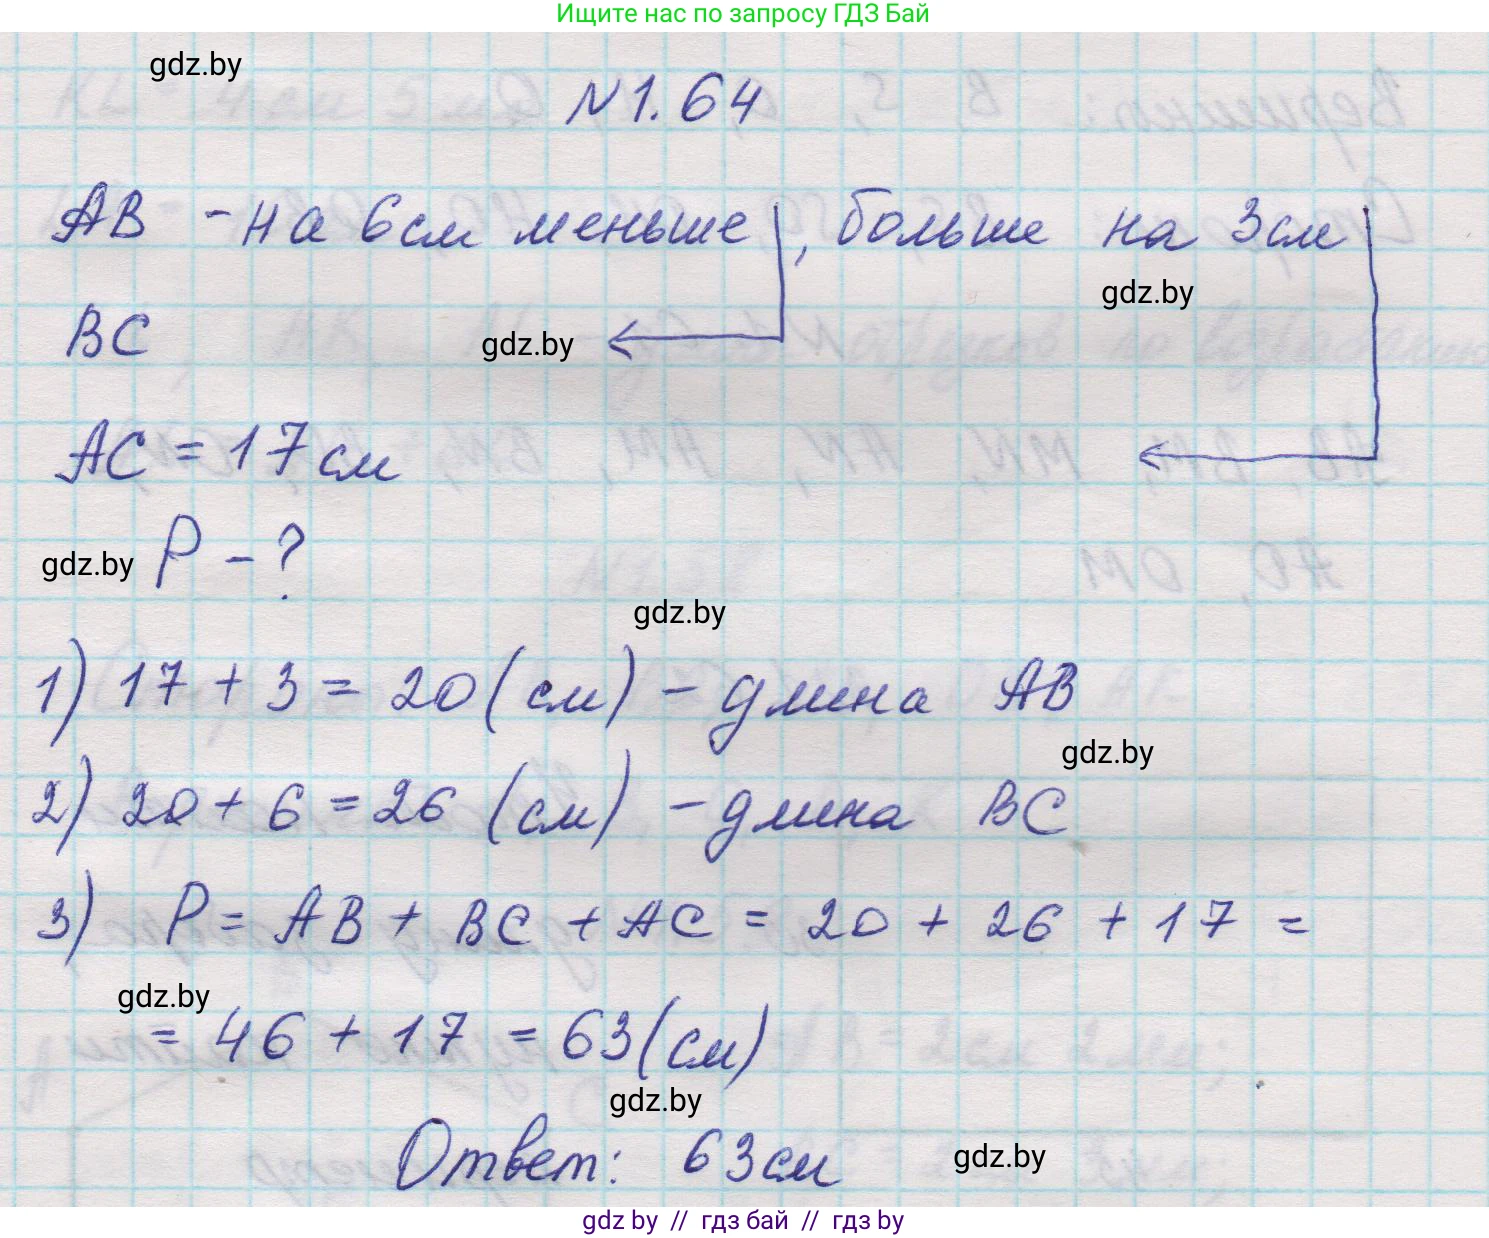 Ищите нас по запросу ГДЗ Бай
gdz.by
№1.64
AB - на 6см меньше, больше на 3см
gdz.by
BC
gdz.by
AC = 17см
P - ?
gdz.by
gdz.by
1) 17 + 3 = 20 (см) - длина AB
gdz.by
2) 20 + 6 = 26 (см) - длина BC
3) P = AB + BC + AC = 20 + 26 + 17 =
gdz.by
= 46 + 17 = 63 (см)
gdz.by
Ответ: 63см
gdz.by
gdz by // гдз бай // гдз by